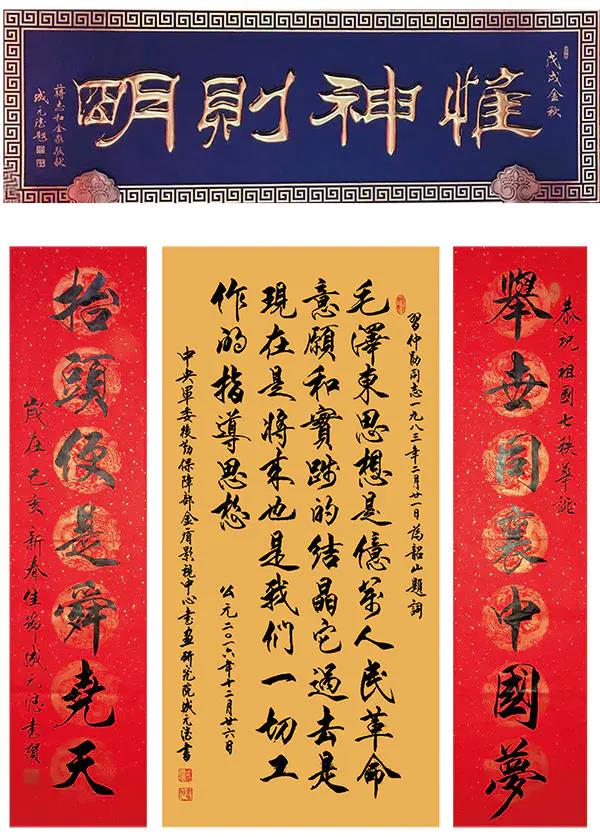 戊戌金秋
惟神則明
蔣志和金泉敬獻
成元德題
恭祝祖國七秩華誕
舉世同襄中國夢
習仲勛同志一九八三年二月廿一日為韶山題詞
毛澤東思想是億萬人民革命
意願和實踐的結晶它過去是
現在是將來也是我们一切工
作的指導思想
公元二〇一六年十二月廿六日
中央軍委後勤保障部金盾影視中心書畫研究院成元德書
抬頭便是舜堯天
歲在己亥新春佳節成元德書賀